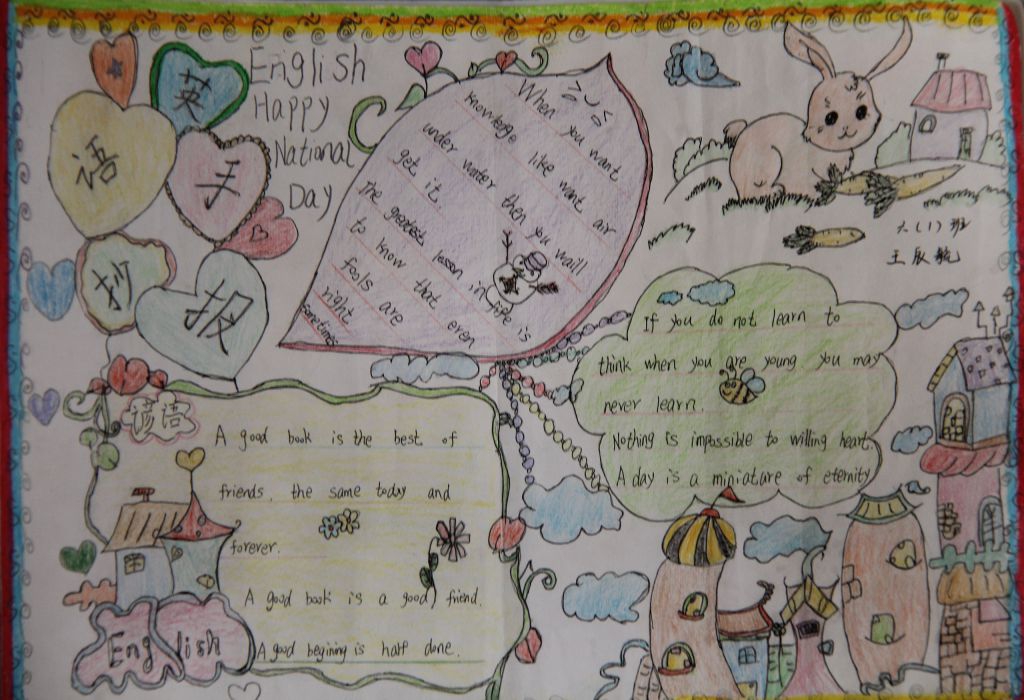 英
语
手
抄
报
English
Happy
National
Day
When you want
knowledge like want air
under water then you waill
get it.
the greatest lesson in life is
to know that even
fools are
right
sometimes
六(1)班
王辰毓
谚语
A good book is the best of
friends. the same today and
forever.
A good book is a good friend.
A good begining is half done.
English
If you do not learn to
think when you are young. you may
never learn.
Nothing is impossible to willing heart.
A day is a miniature of eternity